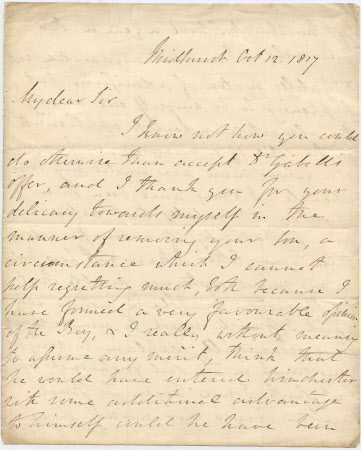 Midhurst Oct 12 1817
My dear Sir
I know not how you could
do otherwise than accept Dr Gabell's
offer, and I thank you for your
delicacy towards myself in the
manner of removing your son, a
circumstance which I cannot
help regretting much, both because I
have formed a very favourable opinion
of the Boy, & I really, without meaning
to assume any merit, think that
he would have entered Winchester
with some additional advantage
to himself could he have been